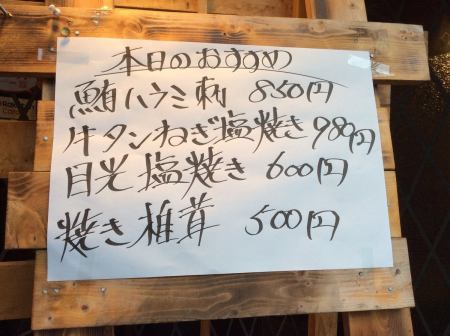 本日のおすすめ
鮪ハラミ刺 850円
牛タンねぎ塩焼き 980円
目光塩焼き 600円
焼き椎茸 500円